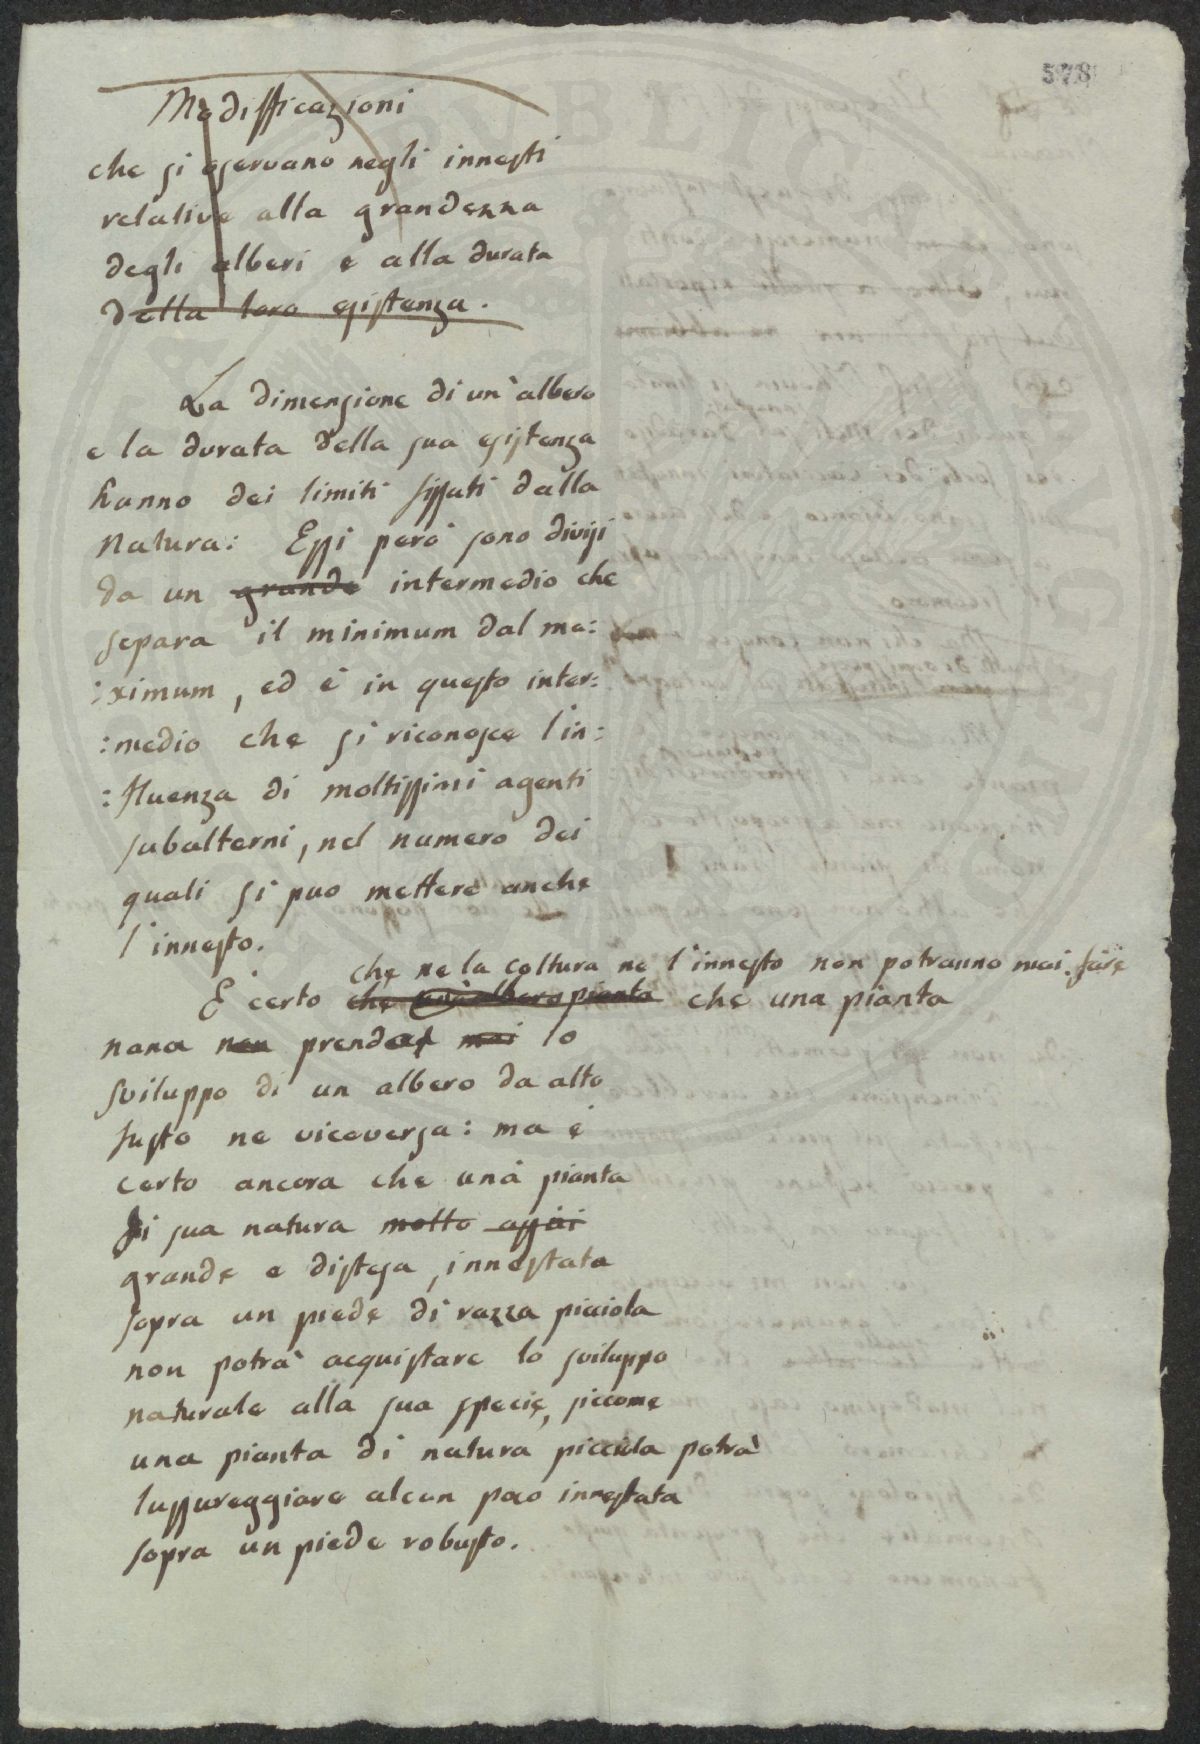 578
Modifficazioni
che si oservano negli innesti
relative alla grandezza
degli alberi e alla durata
della loro esistenza.
La dimensione di un'albero
e la durata della sua esistenza
hanno dei limiti fissati dalla
Natura: Essi però sono divisi
da un grande intermedio che
separa il minimum dal ma:
:ximum, ed è in questo inter:
:medio che si riconosce l'in:
:fluenza di moltissimi agenti
subalterni, nel numero dei
quali si può mettere anche
l'innesto.
che ne la coltura ne l'innesto non potranno mai fare
È certo che una pianta
nana non prenda mai lo
sviluppo di un albero da alto
fusto ne viceversa: ma è
certo ancora che una pianta
di sua natura molto assai
grande e distesa, innestata
sopra un piede di razza picciola
non potrà acquistare lo sviluppo
naturale alla sua specie, siccome
una pianta di natura picciola potrà
lussureggiare alcun poco innestata
sopra un piede robusto.